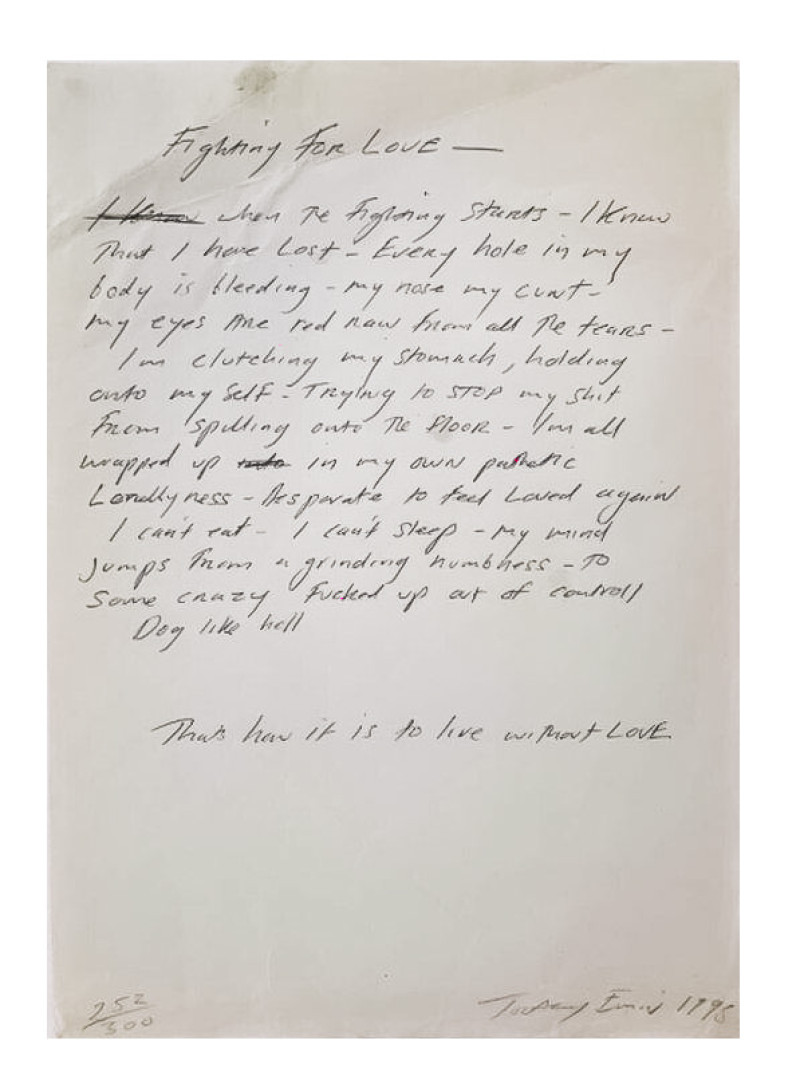 Fighting For LOVE —
I Know when The Fighting Starts - I Know
That I have Lost - Every hole in my
body is bleeding - my nose my cunt -
my eyes Are red raw from all The tears -
I'm clutching my stomach, holding
onto my self - Trying to STOP my shit
From spilling onto The Floor - I'm all
wrapped up into in my own pathetic
Londlyness - Desparate to feel Loved again
I can't eat - I can't sleep - my mind
Jumps From a grinding numbness - TO
Some crazy Fucked up out of controll
Dog like hell
Thats how it is to live without LOVE
252/500
Tracey Emin 1998